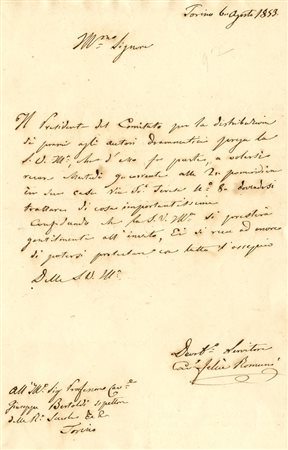 Torino 6 Agosto 1853.
Ill.mo Signore
Il Presidente del Comitato per la distribuzione
di premi agli autori drammatici prega la
S. V. Ill.ma, che d'esso fa parte, a volersi
recare alle 2 pomeridiane
in sua casa via S.ta Teresa N.° 8 dovendosi
trattare di cosa importantissima
Confidando che la S. V. Ill.ma si presterà
gentilmente all'invito, Ei si reca ad onore
di potersi protestare con tutto l'ossequio
Della S. V. Ill.ma
Devot.mo Servitore
Cav. Felice Romani
All' Ill.mo Sig. Professore Cav.e
Giuseppe Bertoldi Ispettore
delle R.e Scuole &. &.
Torino